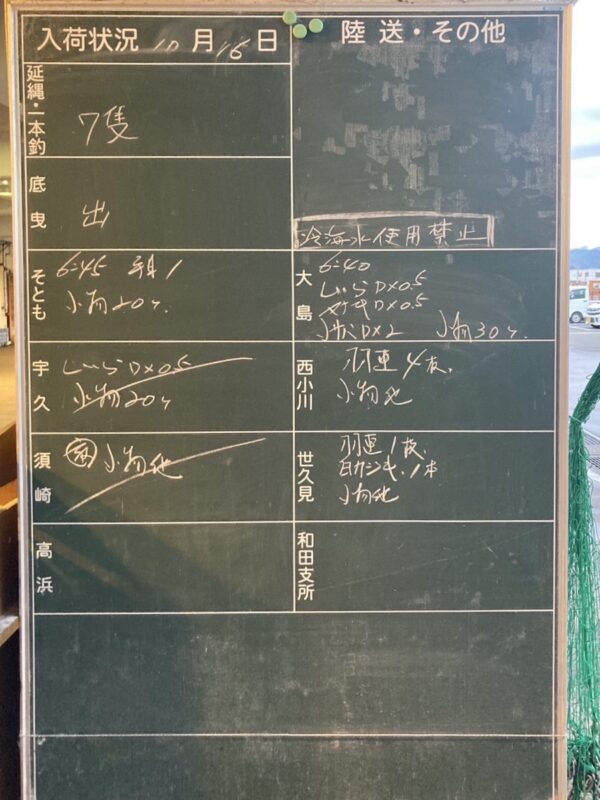 入荷状況 10月16日
陸送・その他
延縄・一本釣
7隻
底曳
出
冷海水使用禁止
そとも
6:45
小物20ケ
大島
6:40
しいらD×0.5
D×0.5
D×2 小物30ケ
宇久
しいらD×0.5
小物20ケ
西小川
羽重4枚
小物他
須崎
小物他
世久見
羽重1枚
白カジキ1本
小物他
高浜
和田支所